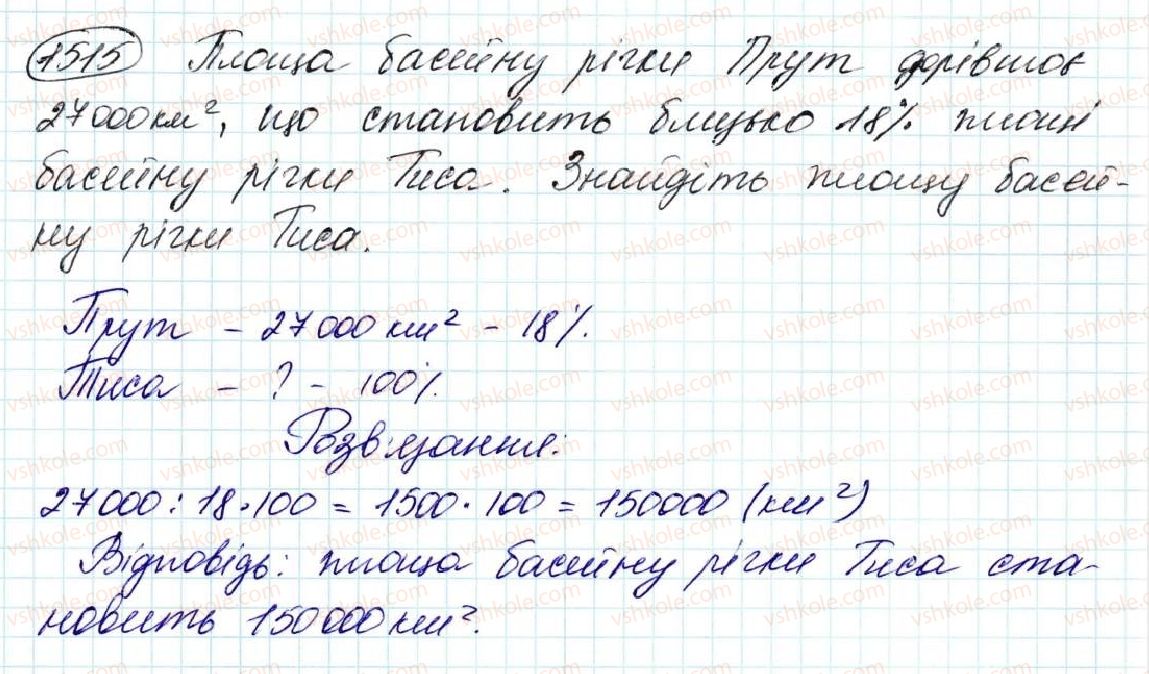 1515 Площа басейну річки Прут дорівнює
27000 км², що становить близько 18% площі
басейну річки Тиса. Знайдіть площу басей-
ну річки Тиса.
Прут – 27000 км² – 18%.
Тиса – ? – 100%.
Розв'язання:
27000 : 18 · 100 = 1500 · 100 = 150000 (км²)
Відповідь: площа басейну річки Тиса ста-
новить 150000 км².
vshkole.com